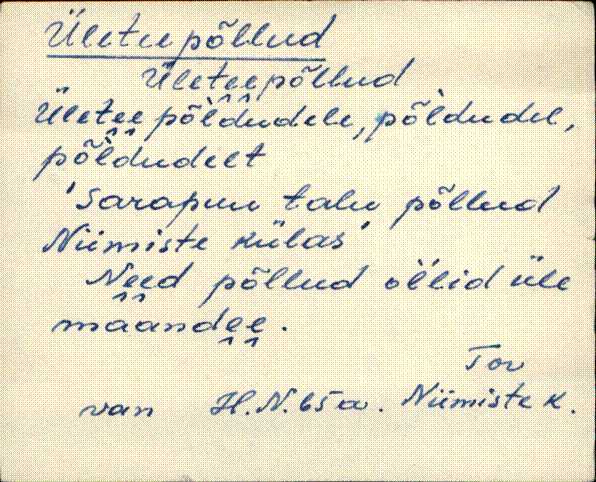 Ületeepõllud
Ületeepõllud
Ületeepõldudele, põldudel,
põldudelt
'Sarapuu talu põllud
Niimiste külas'
Need põllud ollid üle
maandee.
Tor
van H.N. 65 a. Niimiste k.